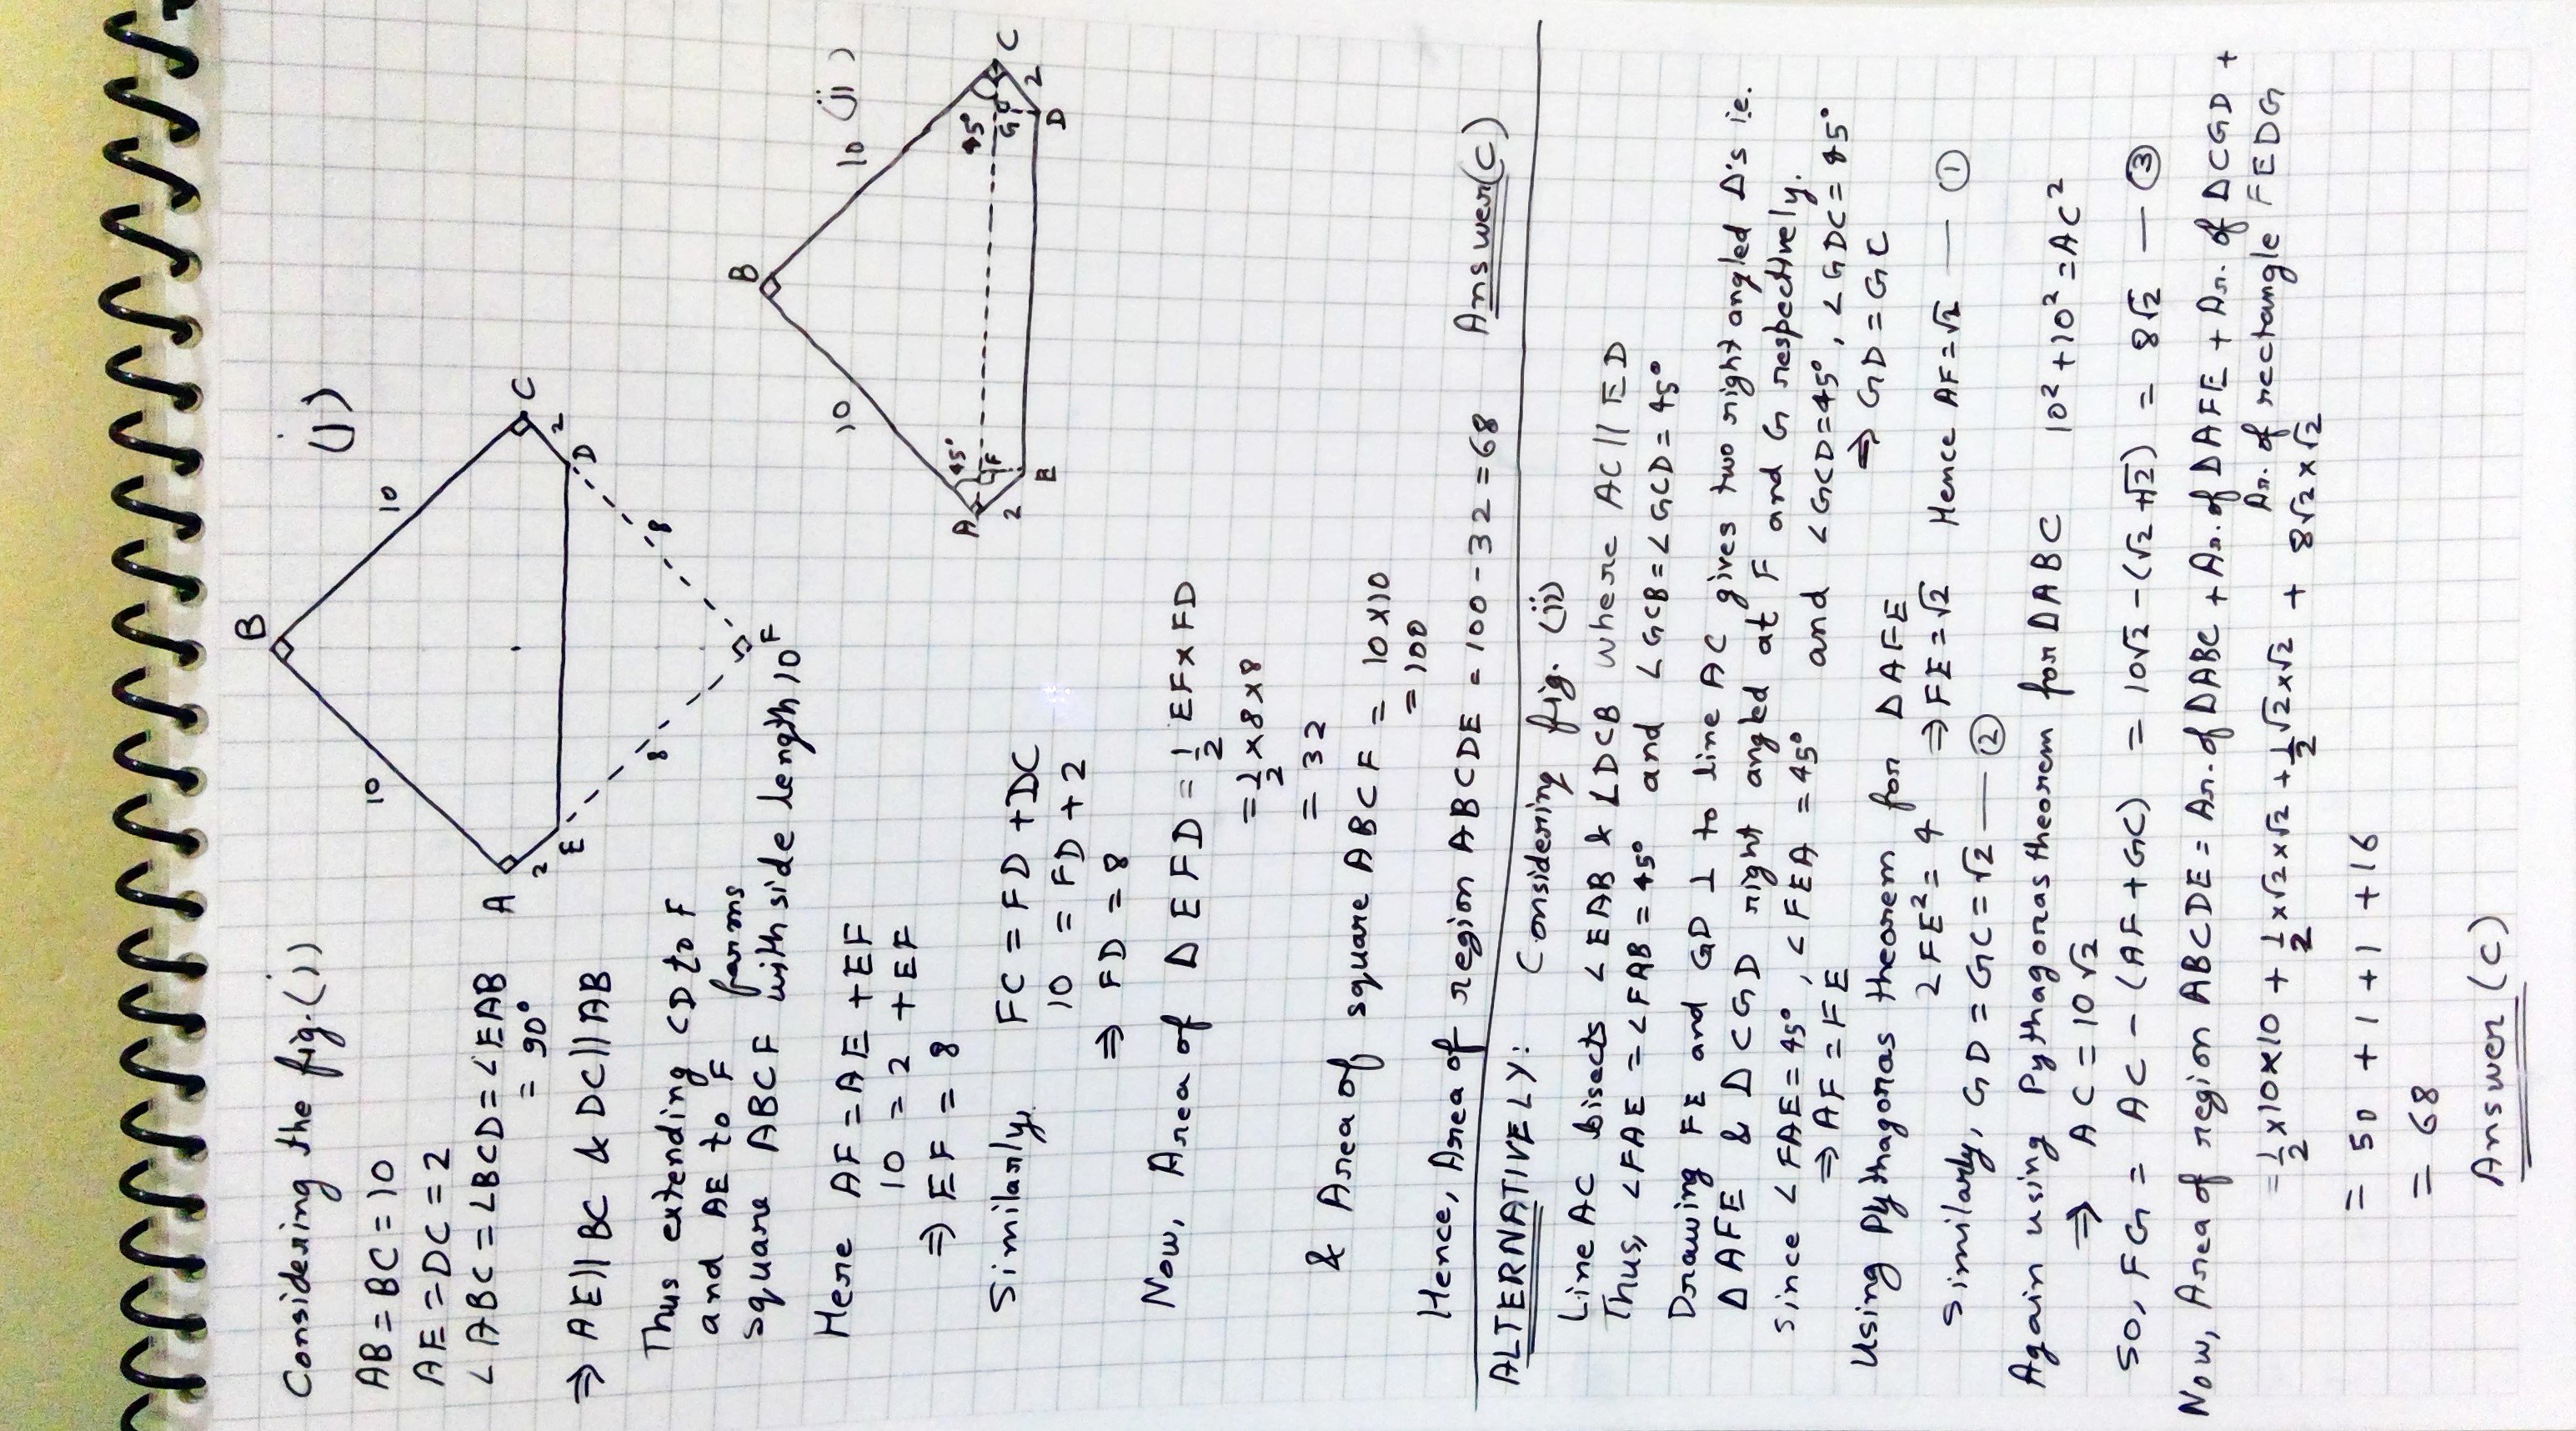 Considering the fig.(i)
AB = BC = 10
AE = DC = 2
∠ABC = ∠BCD = ∠EAB
= 90°
⇒ AE || BC & DC || AB
Thus extending CD to F
and AE to F forms
square ABCF with side length 10
Here AF = AE + EF
10 = 2 + EF
⇒ EF = 8
Similarly FC = FD + DC
10 = FD + 2
⇒ FD = 8
Now, Area of Δ EFD = 1/2 EF × FD
= 1/2 × 8 × 8
= 32
& Area of square ABCF = 10 × 10
= 100
Hence, Area of region ABCDE = 100 - 32 = 68 Answer (C)
(i)
B
10
10
A
C
2
2
E
D
8
8
F
(ii)
B
10
10
45°
45°
A
F
G
C
2
2
E
D
ALTERNATIVELY: Considering fig. (ii)
Line AC bisects ∠EAB & ∠DCB where AC || ED
Thus, ∠FAE = ∠FAB = 45° and ∠GCB = ∠GCD = 45°
Drawing FE and GD ⊥ to line AC gives two right angled Δ's i.e.
Δ AFE & Δ CGD right angled at F and G respectively.
since ∠FAE = 45°, ∠FEA = 45° and ∠GCD = 45°, ∠GDC = 45°
⇒ AF = FE ⇒ GD = GC
Using Pythagoras theorem for Δ AFE
2FE² = 4 ⇒ FE = √2 Hence AF = √2 — ①
Similarly, GD = GC = √2 — ②
Again using Pythagoras theorem for Δ ABC 10² + 10² = AC²
⇒ AC = 10√2
So, FG = AC - (AF + GC) = 10√2 - (√2 + √2) = 8√2 — ③
Now, Area of region ABCDE = Ar. of ΔABC + Ar. of ΔAFE + Ar. of ΔCGD +
Ar. of rectangle FEDG
= 1/2 × 10 × 10 + 1/2 × √2 × √2 + 1/2 √2 × √2 + 8√2 × √2
= 50 + 1 + 1 + 16
= 68
Answer (C)